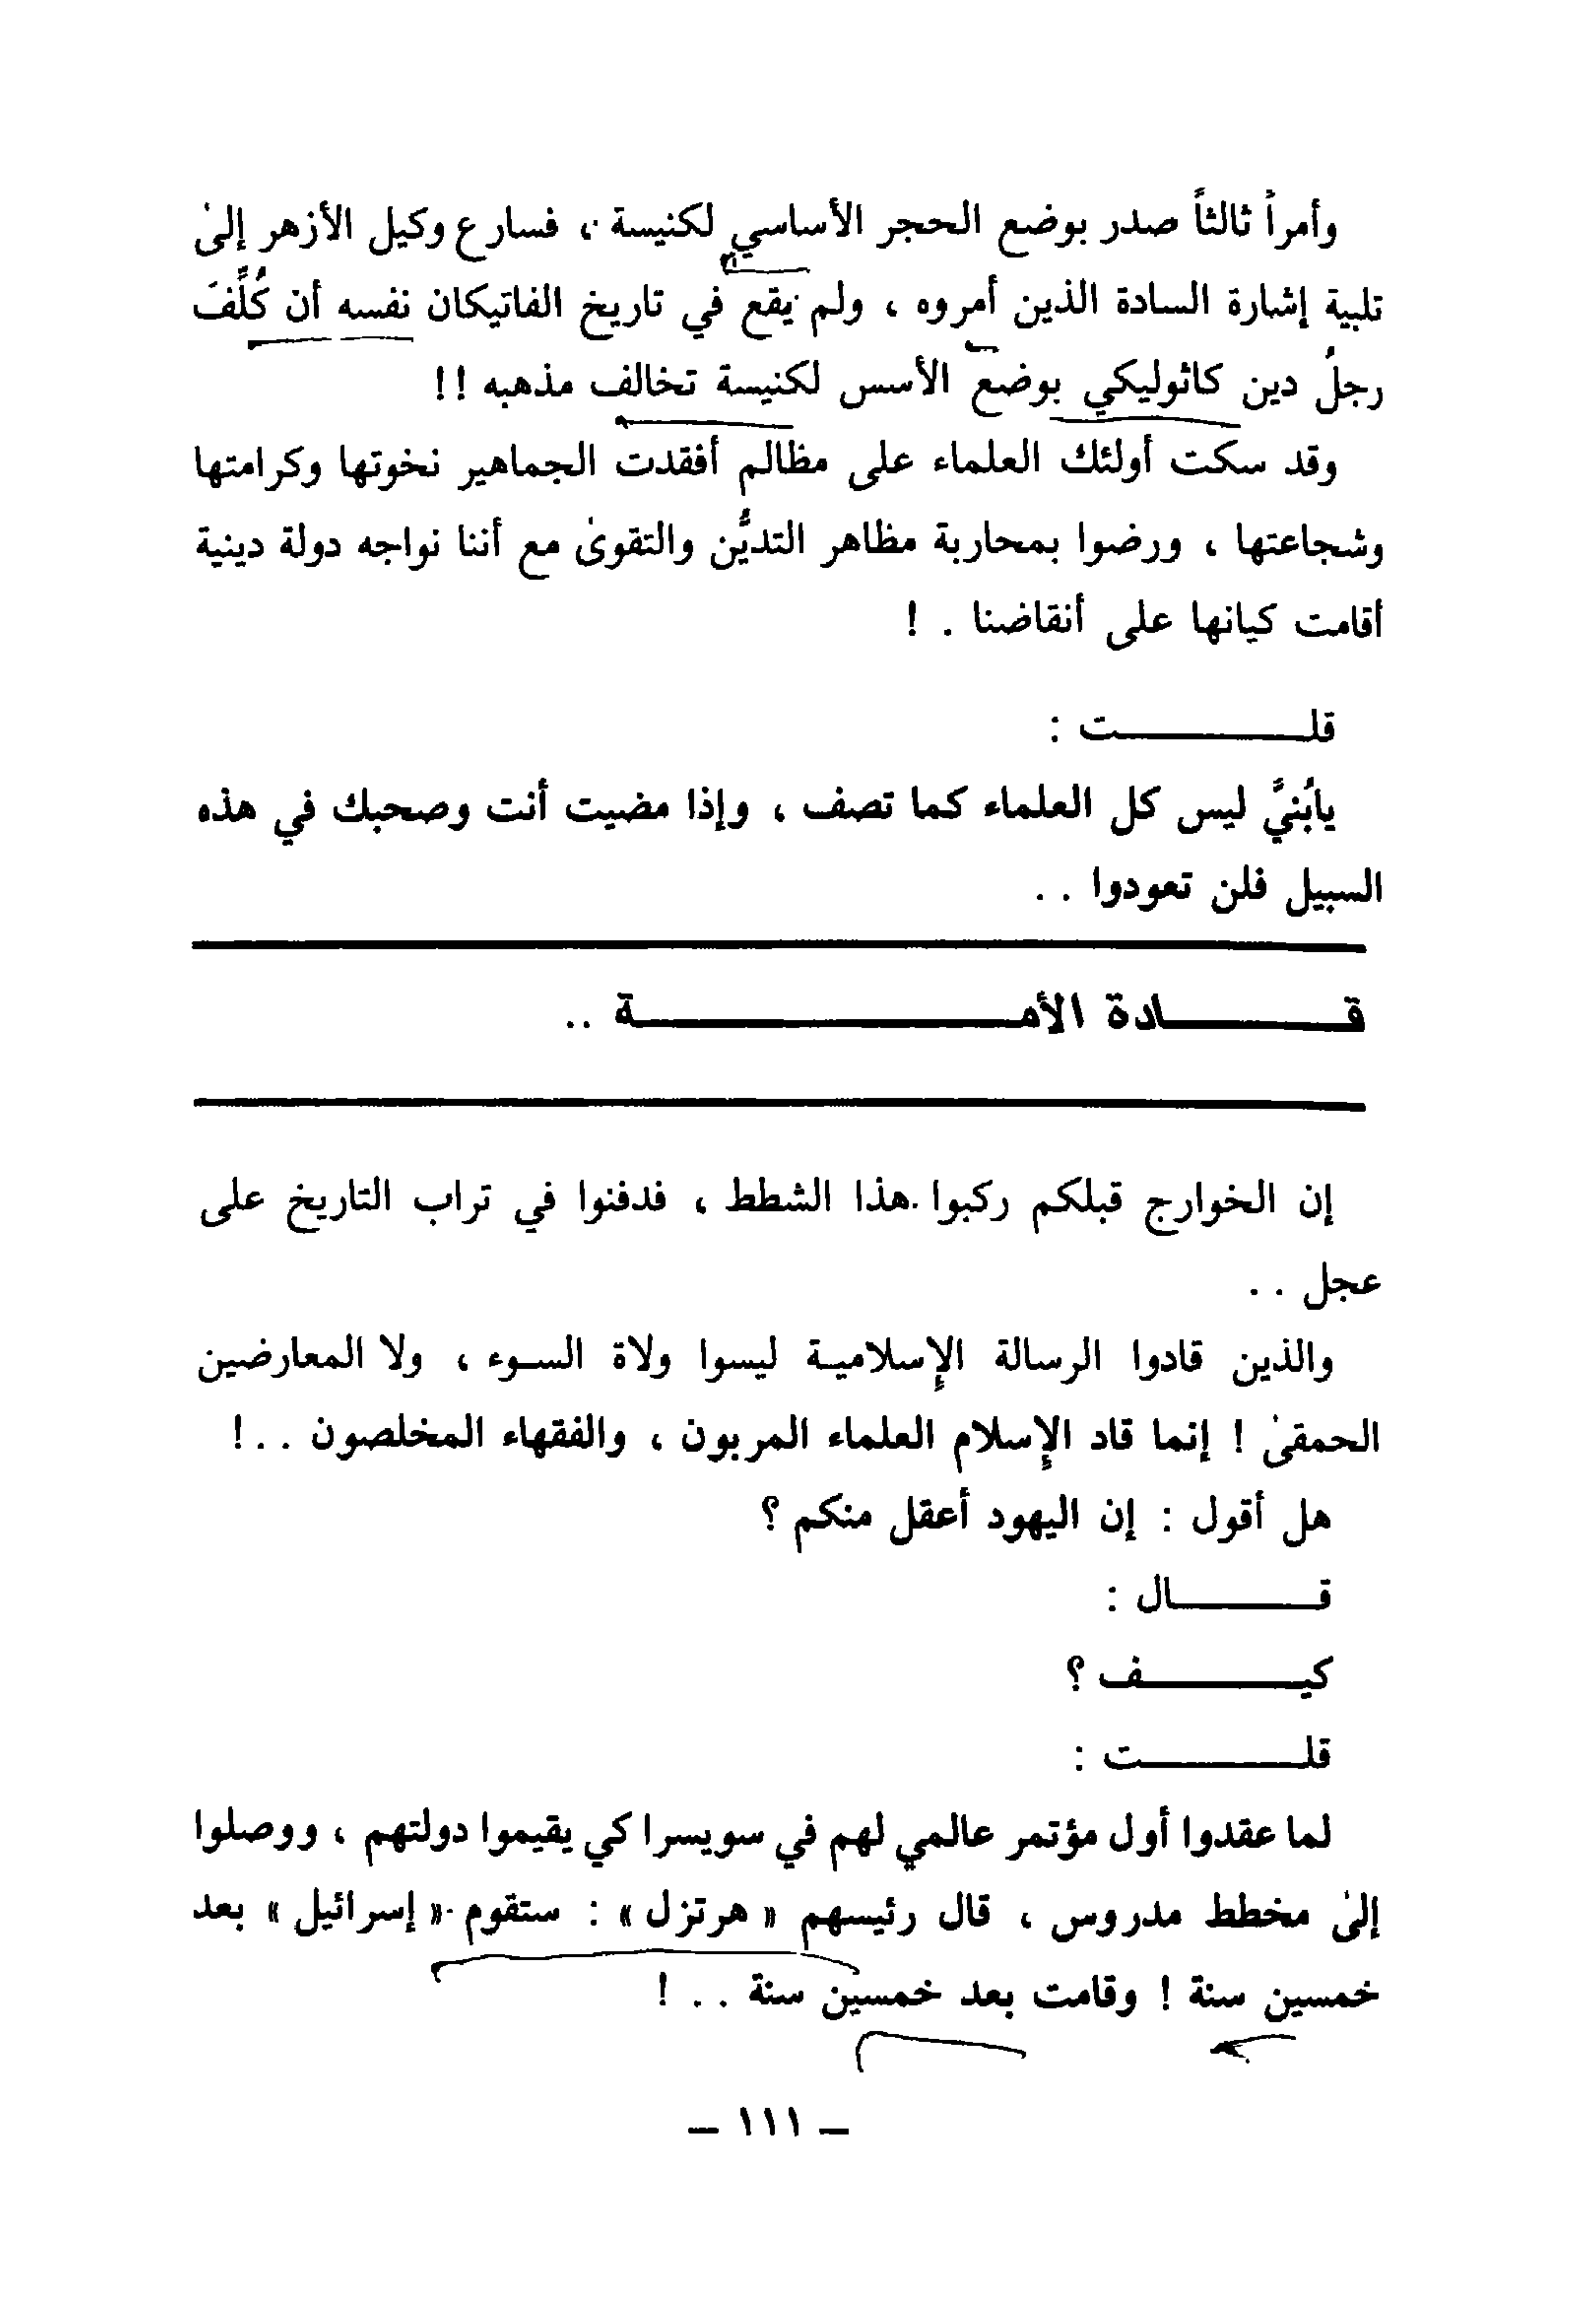 وأمراً ثالثاً صدر بوضع الحجر الأساسي لكنيسة ، فسارع وكيل الأزهر إلىٰ
تلبية إشارة السادة الذين أمروه ، ولم يقع في تاريخ الفاتيكان نفسه أن كُلِّفَ
رجلُ دين كاثوليكي بوضع الأسس لكنيسة تخالف مذهبه !!
وقد سكت أولئك العلماء على مظالم أفقدت الجماهير نخوتها وكرامتها
وشجاعتها ، ورضوا بمحاربة مظاهر التديُّن والتقوىٰ مع أننا نواجه دولة دينية
أقامت كيانها على أنقاضنا . !
قلـــــــت :
يابُنيَّ ليس كل العلماء كما تصف ، وإذا مضيت أنت وصحبك في هذه
السبيل فلن تعودوا . .
قـــــــادة الأمـــــــــــــة ..
إن الخوارج قبلكم ركبوا هذا الشطط ، فدفنوا في تراب التاريخ على
عجل . .
والذين قادوا الرسالة الإسلاميـة ليسوا ولاة السـوء ، ولا المعارضين
الحمقىٰ ! إنما قاد الإسلام العلماء المربون ، والفقهاء المخلصون . . !
هل أقول : إن اليهود أعقل منكم ؟
قـــــــال :
كيـــــــف ؟
قلـــــــت :
لما عقدوا أول مؤتمر عالمي لهم في سويسرا كي يقيموا دولتهم ، ووصلوا
إلىٰ مخطط مدروس ، قال رئيسهم « هرتزل » : ستقوم « إسرائيل » بعد
خمسين سنة ! وقامت بعد خمسين سنة . . !
– ١١١ –